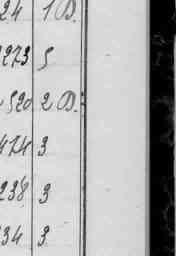 24 1 D.
2273 5
520 2 D.
474 3
238 3
34 3